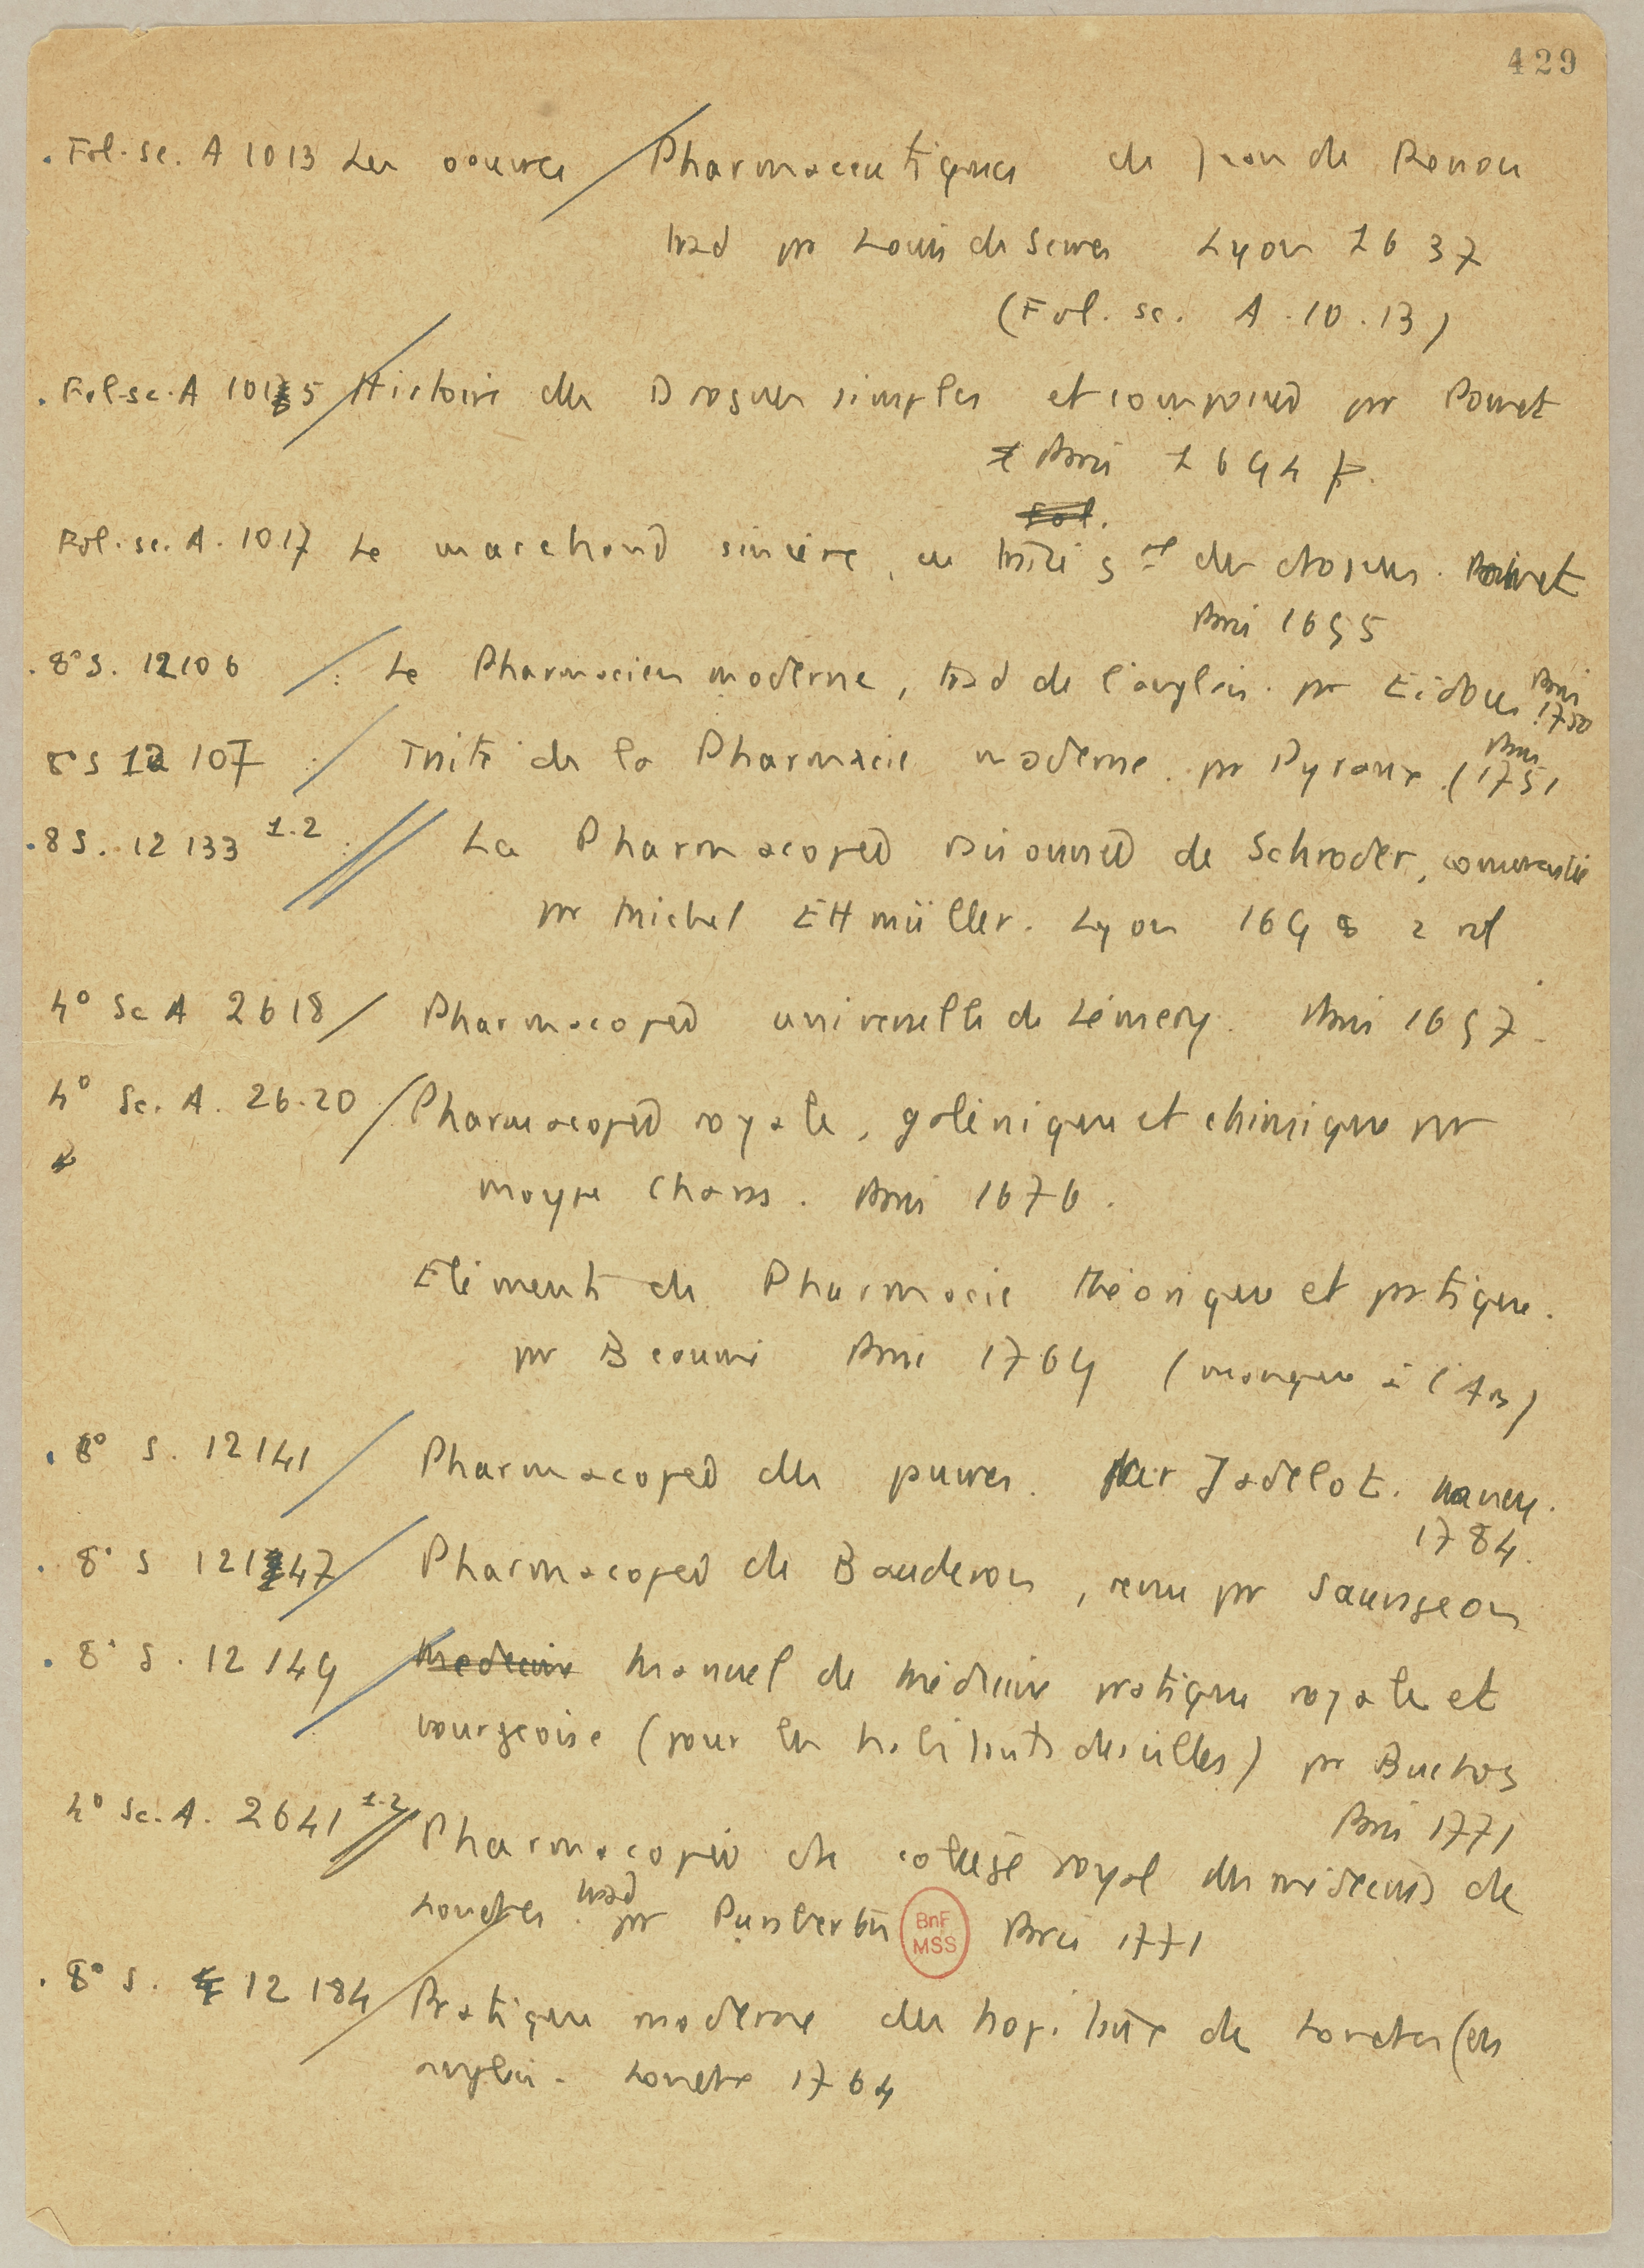 429
. Fol. sc. A 1013 Les oeuvres Pharmaceutiques de Jean de Renou
trad par Louis de Serres Lyon 1637
(Fol. sc. A. 10.13)
. Fol. sc. A 1015 Histoire des Drogues simples et composées par Pomet
Paris 1694
Fol.
Fol. sc. A. 1017 Le marchand sincère, ou traité gal des drogues. Pomet
Paris 1695
. 8° S. 12106 : Le Pharmacien moderne, trad de l'anglais. par Eidous Paris 1750
8° S 12 107 : Traité de la Pharmacie moderne. par Pyraux (Paris 1751
. 8 S. 12 133 1.2 : La Pharmacopée raisonnée de Schroder, commentée
par Michel Ettmüller. Lyon 1698 2 vol
4° Sc A 2618 Pharmacopée universelle de Lémery. Paris 1697.
4° Sc. A. 26.20 Pharmacopée royale, galénique et chimique par
Moyse Charas. Paris 1676.
Eléments de Pharmacie théorique et pratique.
par Beaumé Paris 1769 (manque à l'Ars)
. 8° S. 12141 Pharmacopée des pauvres. par Jadelot. Nancy.
1784.
. 8° S 12147 Pharmacopée de Bauderon, revue par Sauvageon
. 8° S. 12 149 Medecine Manuel de médecine pratique royale et
bourgeoise (pour les habitants des villes) par Buchoz
Paris 1771
4° Sc. A. 2641 1.2 Pharmacopée du collège royal des médecins de
Londres. trad par Paris 1771
BnF
MSS
. 8° S. 12 184 Pratique moderne des hopitaux de Londres (en
anglais. Londres 1764